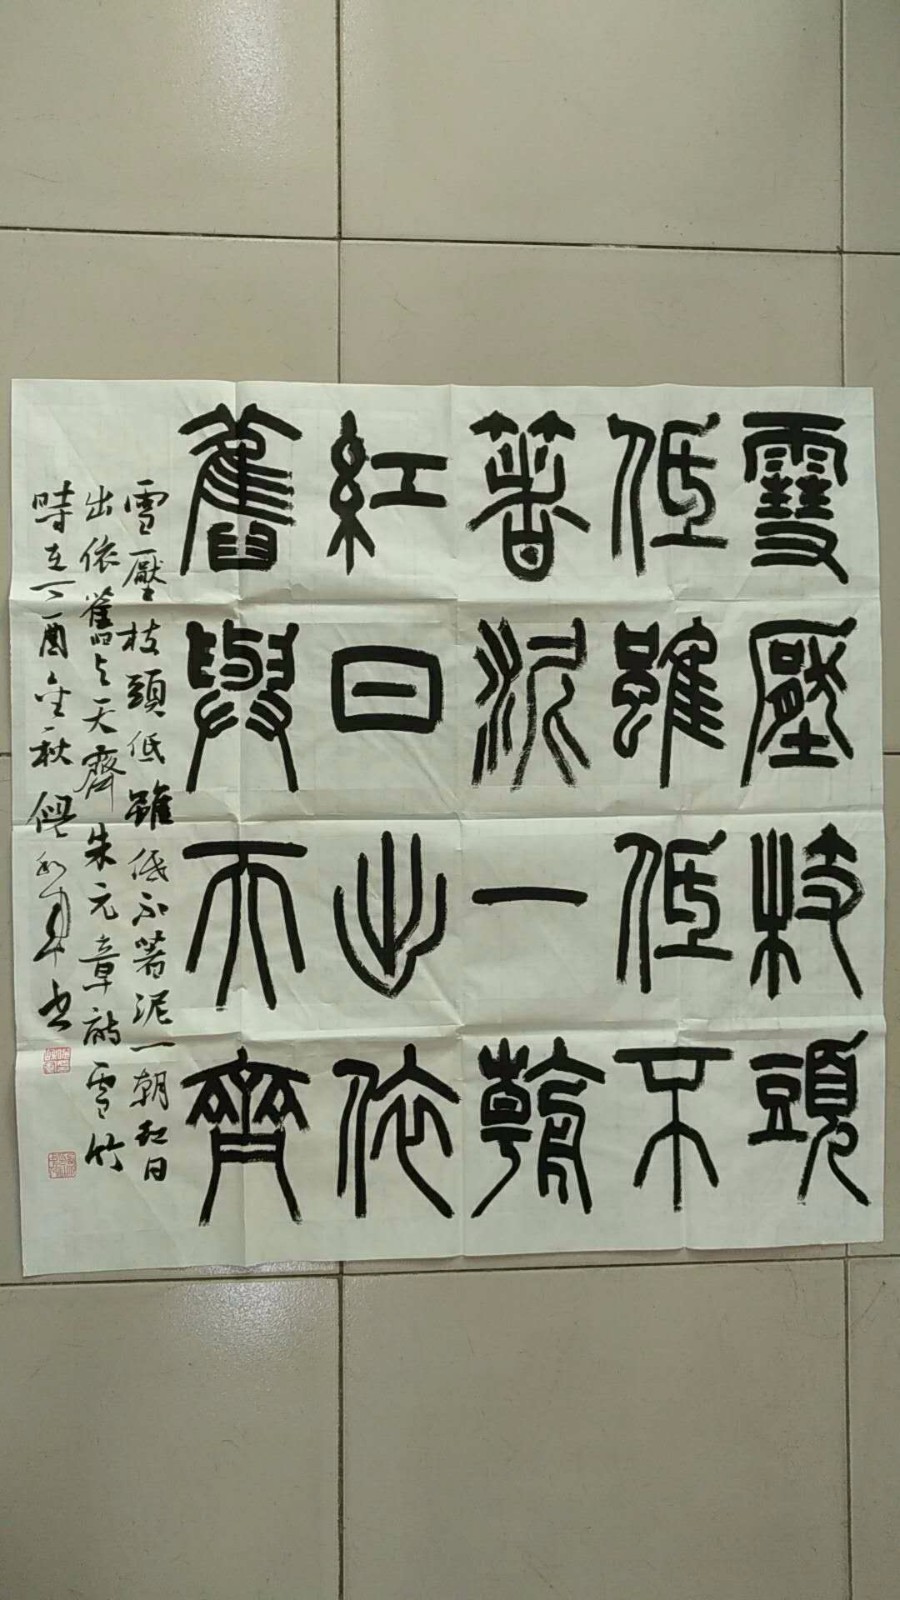 雪壓枝頭
低雖低不
著泥一朝
紅日出依
舊與天齊
雪壓枝頭低雖低不著泥一朝紅日
出依舊与天齊朱元章詠雪竹
時在丁酉金秋